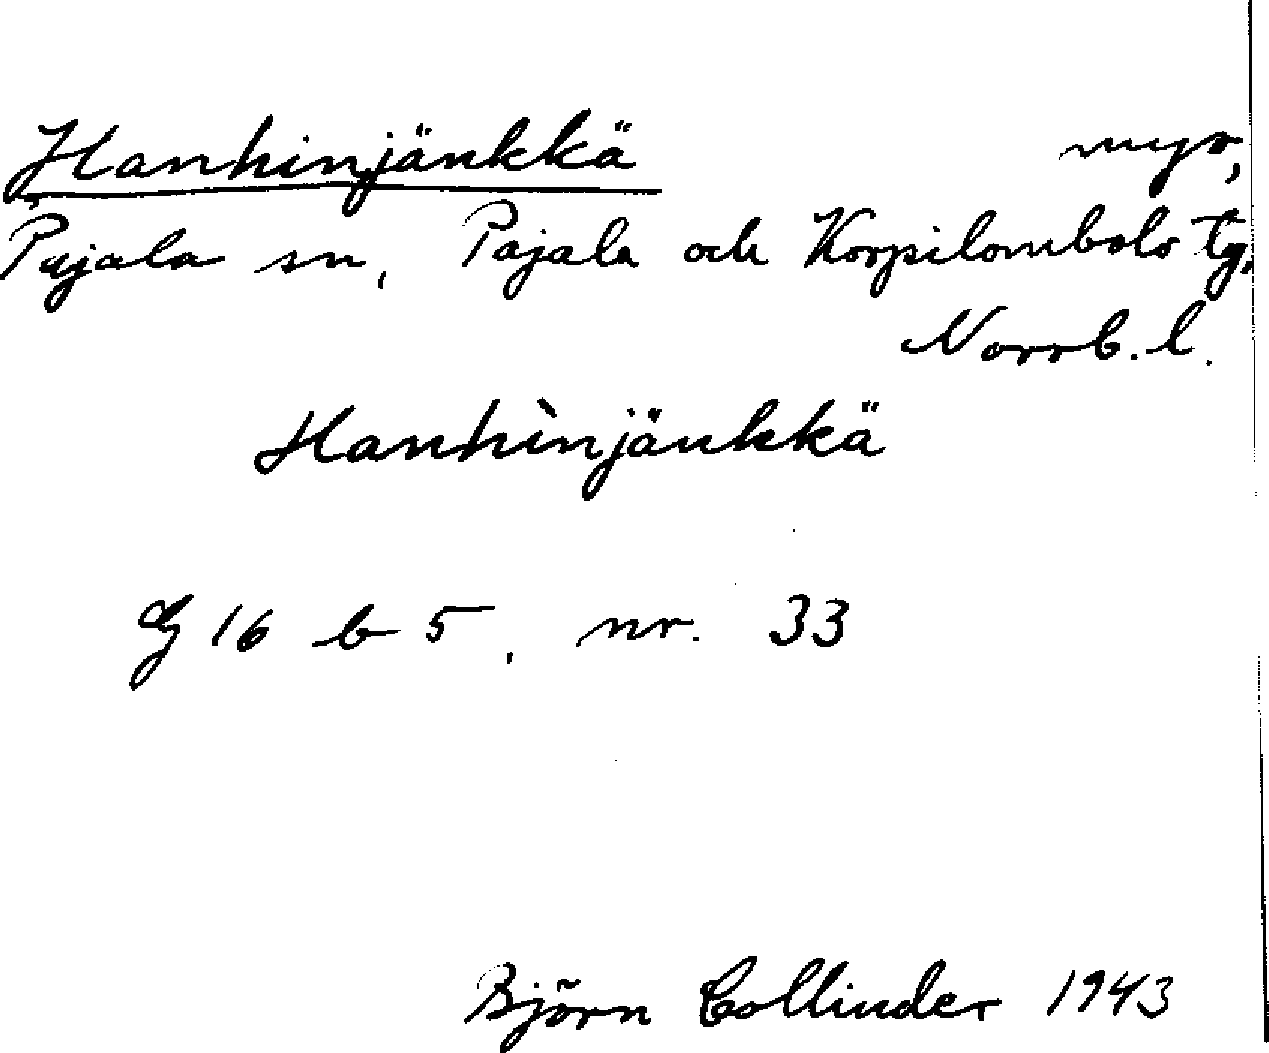 Hanhinjänkkä myr,
Pajala sn, Pajala och Korpilombolo tg,
Norrb. l.
Hanhìnjänkkä
G 16 b 5, nr. 33
Björn Collinder 1943